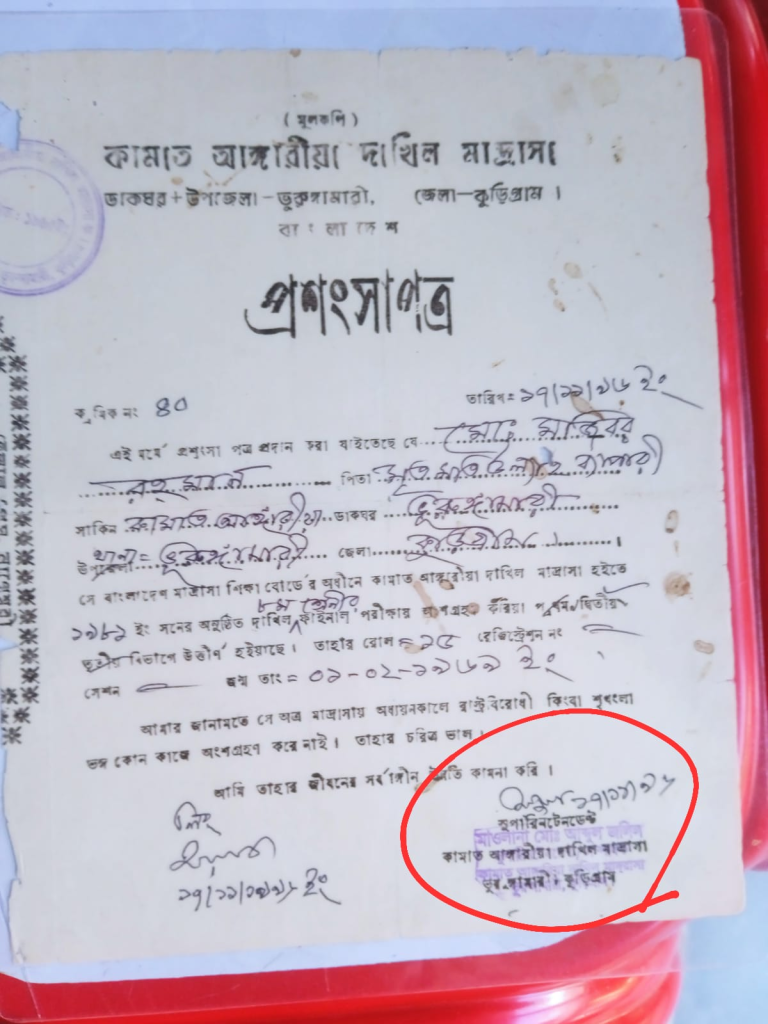 ( মূলকপি )
কামাত আঙ্গারীয়া দাখিল মাদ্রাসা
ডাকঘর + উপজেলা - ভুরুঙ্গামারী, জেলা - কুড়িগ্রাম ।
বাংলাদেশ
প্রশংসাপত্র
ক্রমিক নং 40
তারিখ = ১৭/১১/৯৮ ইং
এই মর্মে প্রশংসা পত্র প্রদান করা যাইতেছে যে মোঃ মাহবিবুর
রহমান পিতা মৃত ব্যাপারী
সাকিন কামাত আঙ্গারীয়া ডাকঘর ভুরুঙ্গামারী
থানা =
উপজেলা ভুরুঙ্গামারী জেলা কুড়িগ্রাম ।
সে বাংলাদেশ মাদ্রাসা শিক্ষা বোর্ডের অধীনে কামাত আঙ্গারীয়া দাখিল মাদ্রাসা হইতে
৮ম শ্রেণীর
১৯৮১ ইং সনের অনুষ্ঠিত দাখিল ফাইনাল পরীক্ষায় অংশগ্রহণ করিয়া প্রথম/দ্বিতীয়
তৃতীয় বিভাগে উত্তীর্ণ হইয়াছে । তাহার রোল = ১৫ রেজিষ্ট্রেশন নং
সেশন জন্ম তাং = ০১-০২-১৯৬৯ ইং
আমার জানামতে সে অত্র মাদ্রাসায় অধ্যয়নকালে রাষ্ট্রবিরোধী কিংবা শৃংখলা
ভঙ্গ কোন কাজে অংশগ্রহণ করে নাই । তাহার চরিত্র ভাল ।
আমি তাহার জীবনের সর্বাঙ্গীন উন্নতি কামনা করি ।
১৭/১১/৯৮
সুপারিনটেনডেন্ট
মাওলানা মোঃ আব্দুল জলিল
কামাত আঙ্গারীয়া দাখিল মাদ্রাসা
ভুরুঙ্গামারী, কুড়িগ্রাম
১৭/১১/৯৮ ইং